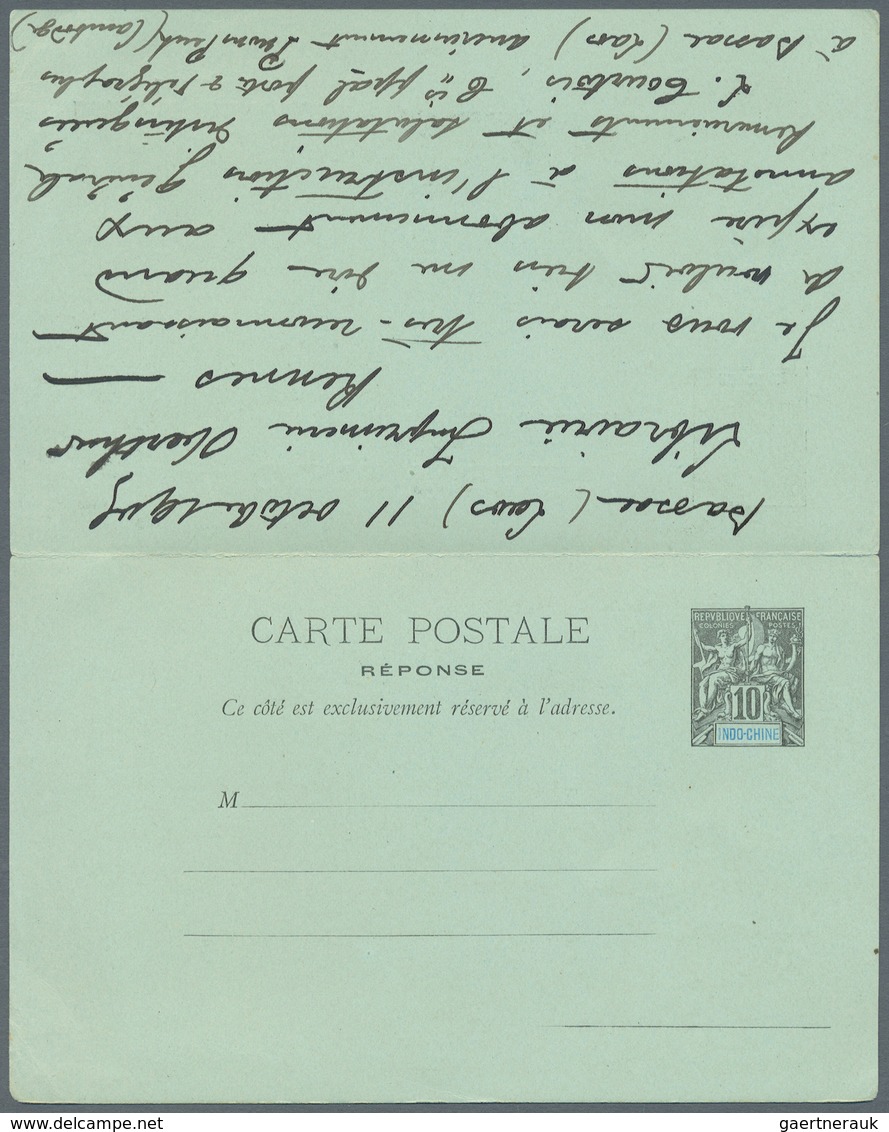 Bassac (Laos) 11 octobre
Librairie Imprimerie Oberthur
Rennes
Je vous serais très-reconnaissant
de vouloir bien me dire quand
expire mon abonnement aux
annotations à l'instruction générale
Remerciements et salutations distinguées
L. Courtois, ppal postes & télégraphes
à Bassac (Laos) anciennement Pnom Penh (Cambodge)
CARTE POSTALE
RÉPONSE
Ce côté est exclusivement réservé à l'adresse.
REPVBLIQVE FRANÇAISE
COLONIES POSTES
10
INDO-CHINE
M
www.delcampe.net
gaertnerauk